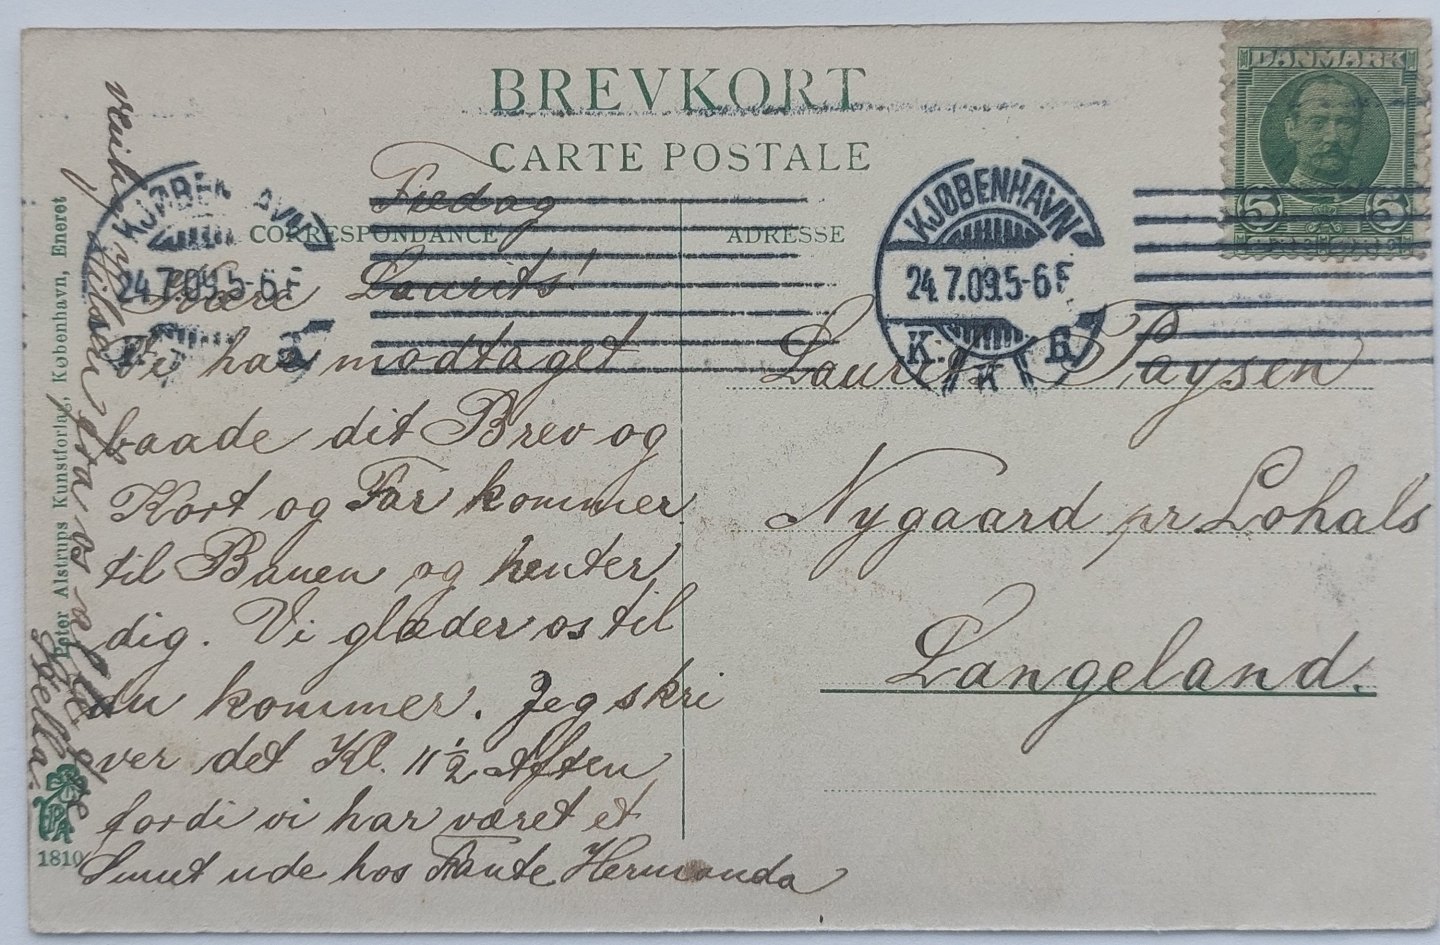 BREVKORT
CARTE POSTALE
CORRESPONDANCE
ADRESSE
DANMARK
5 5
KJØBENHAVN
24.7.09.5-6 F
K. K.B.
KJØBENHAVN
24.7.09.5-6 F
K.
Fredag
Kære Laurits!
Vi har modtaget
baade dit Brev og
Kort og Far kommer
til Banen og henter
dig. Vi glæder os til
du kommer. Jeg skri
ver det Kl. 11 1/2 Aften
fordi vi har været et
Smut ude hos Tante Hermanda
Hilsen fra os alle
Laurits Paysen
Nygaard pr Lohals
Langeland.
Peter Alstrups Kunstforlag, København, Eneret
PA
1810